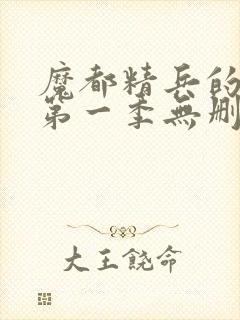 魔都精兵的
第一季無刪
大王饒命